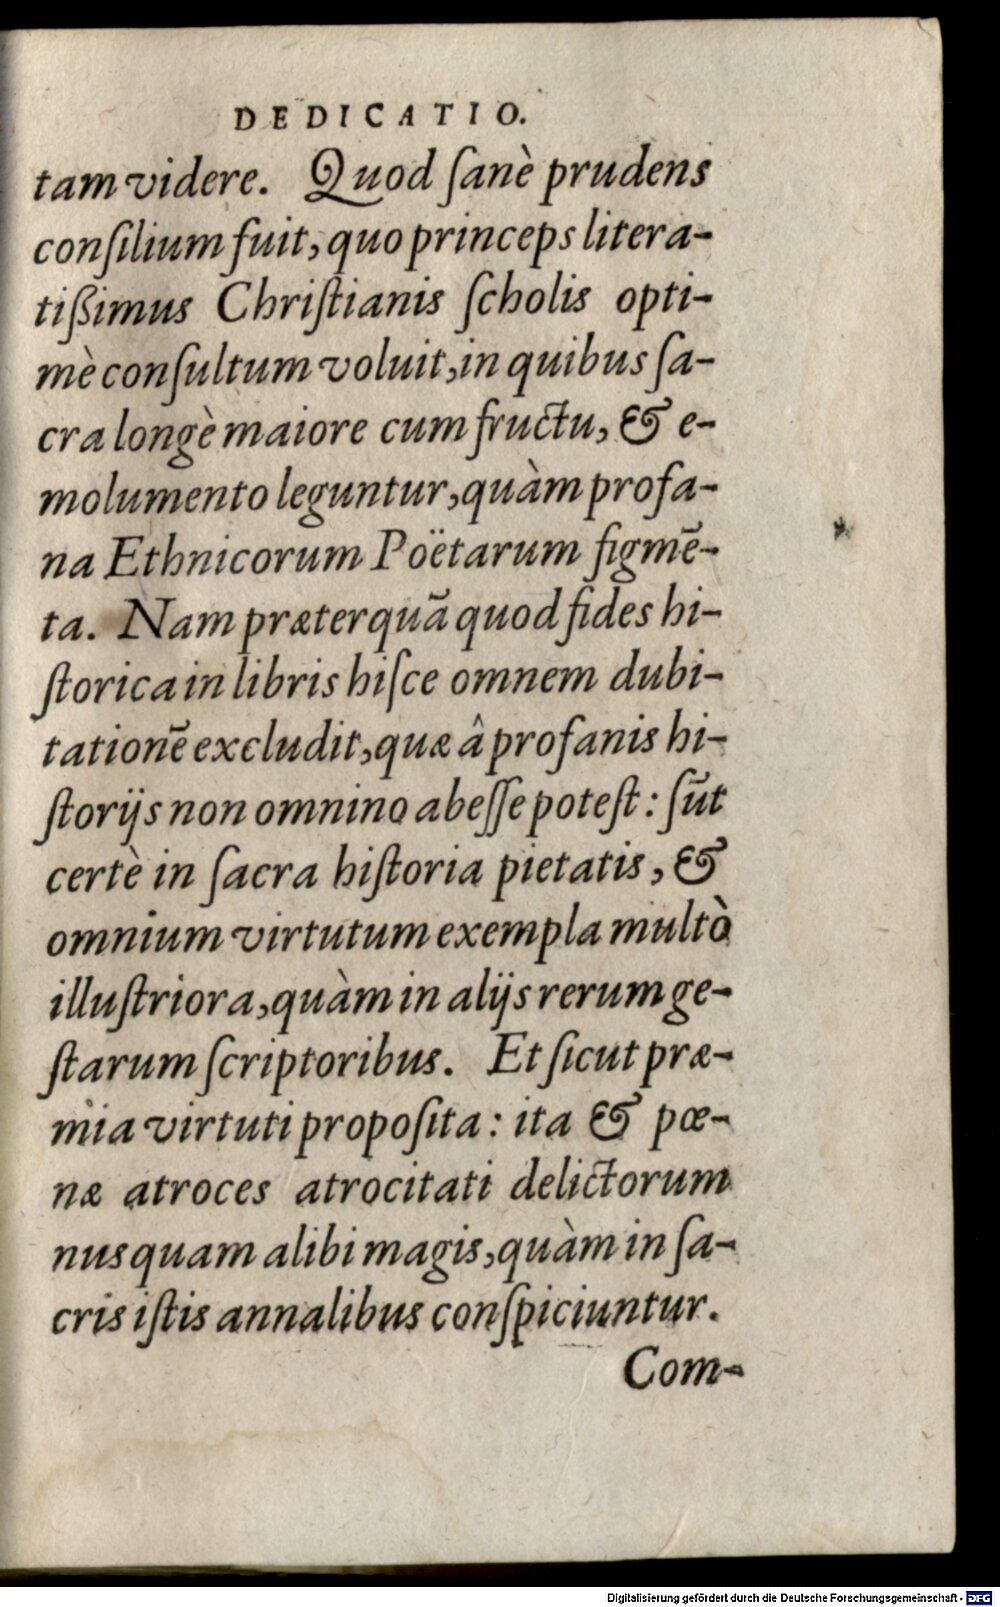 DEDICATIO.
tam videre. Quod ſanè prudens
conſilium fuit, quo princeps litera-
tißimus Chriſtianis ſcholis opti-
mè conſultum voluit, in quibus ſa-
cra longè maiore cum fructu, & e-
molumento leguntur, quàm profa-
na Ethnicorum Poëtarum figmē-
ta. Nam præterquā quod fides hi-
ſtorica in libris hiſce omnem dubi-
tationē excludit, quæ â profanis hi-
ſtorijs non omnino abeſſe poteſt: ſūt
certè in ſacra hiſtoria pietatis, &
omnium virtutum exempla multò
illuſtriora, quàm in alijs rerum ge-
ſtarum ſcriptoribus. Et ſicut præ-
mia virtuti propoſita: ita & pœ-
næ atroces atrocitati delictorum
nusquam alibi magis, quàm in ſa-
cris iſtis annalibus conſpiciuntur.
Com-
Digitalisierung gefördert durch die Deutsche Forschungsgemeinschaft - DFG